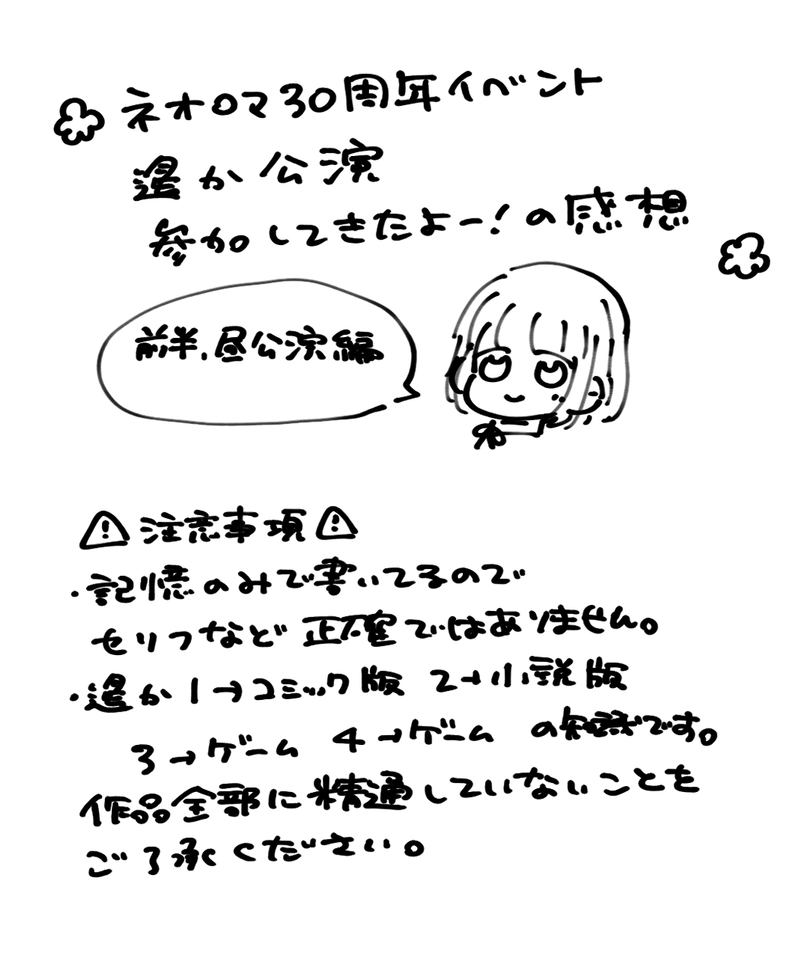 ネオロマ30周年イベント
遙か公演
参加してきたよー!の感想
前半、昼公演編
注意事項
・記憶のみで書いてるので
セリフなど正確ではありません。
・遙か1→コミック版 2→小説版
3→ゲーム 4→ゲーム の知識です。
作品全部に精通していないことを
ご了承ください。